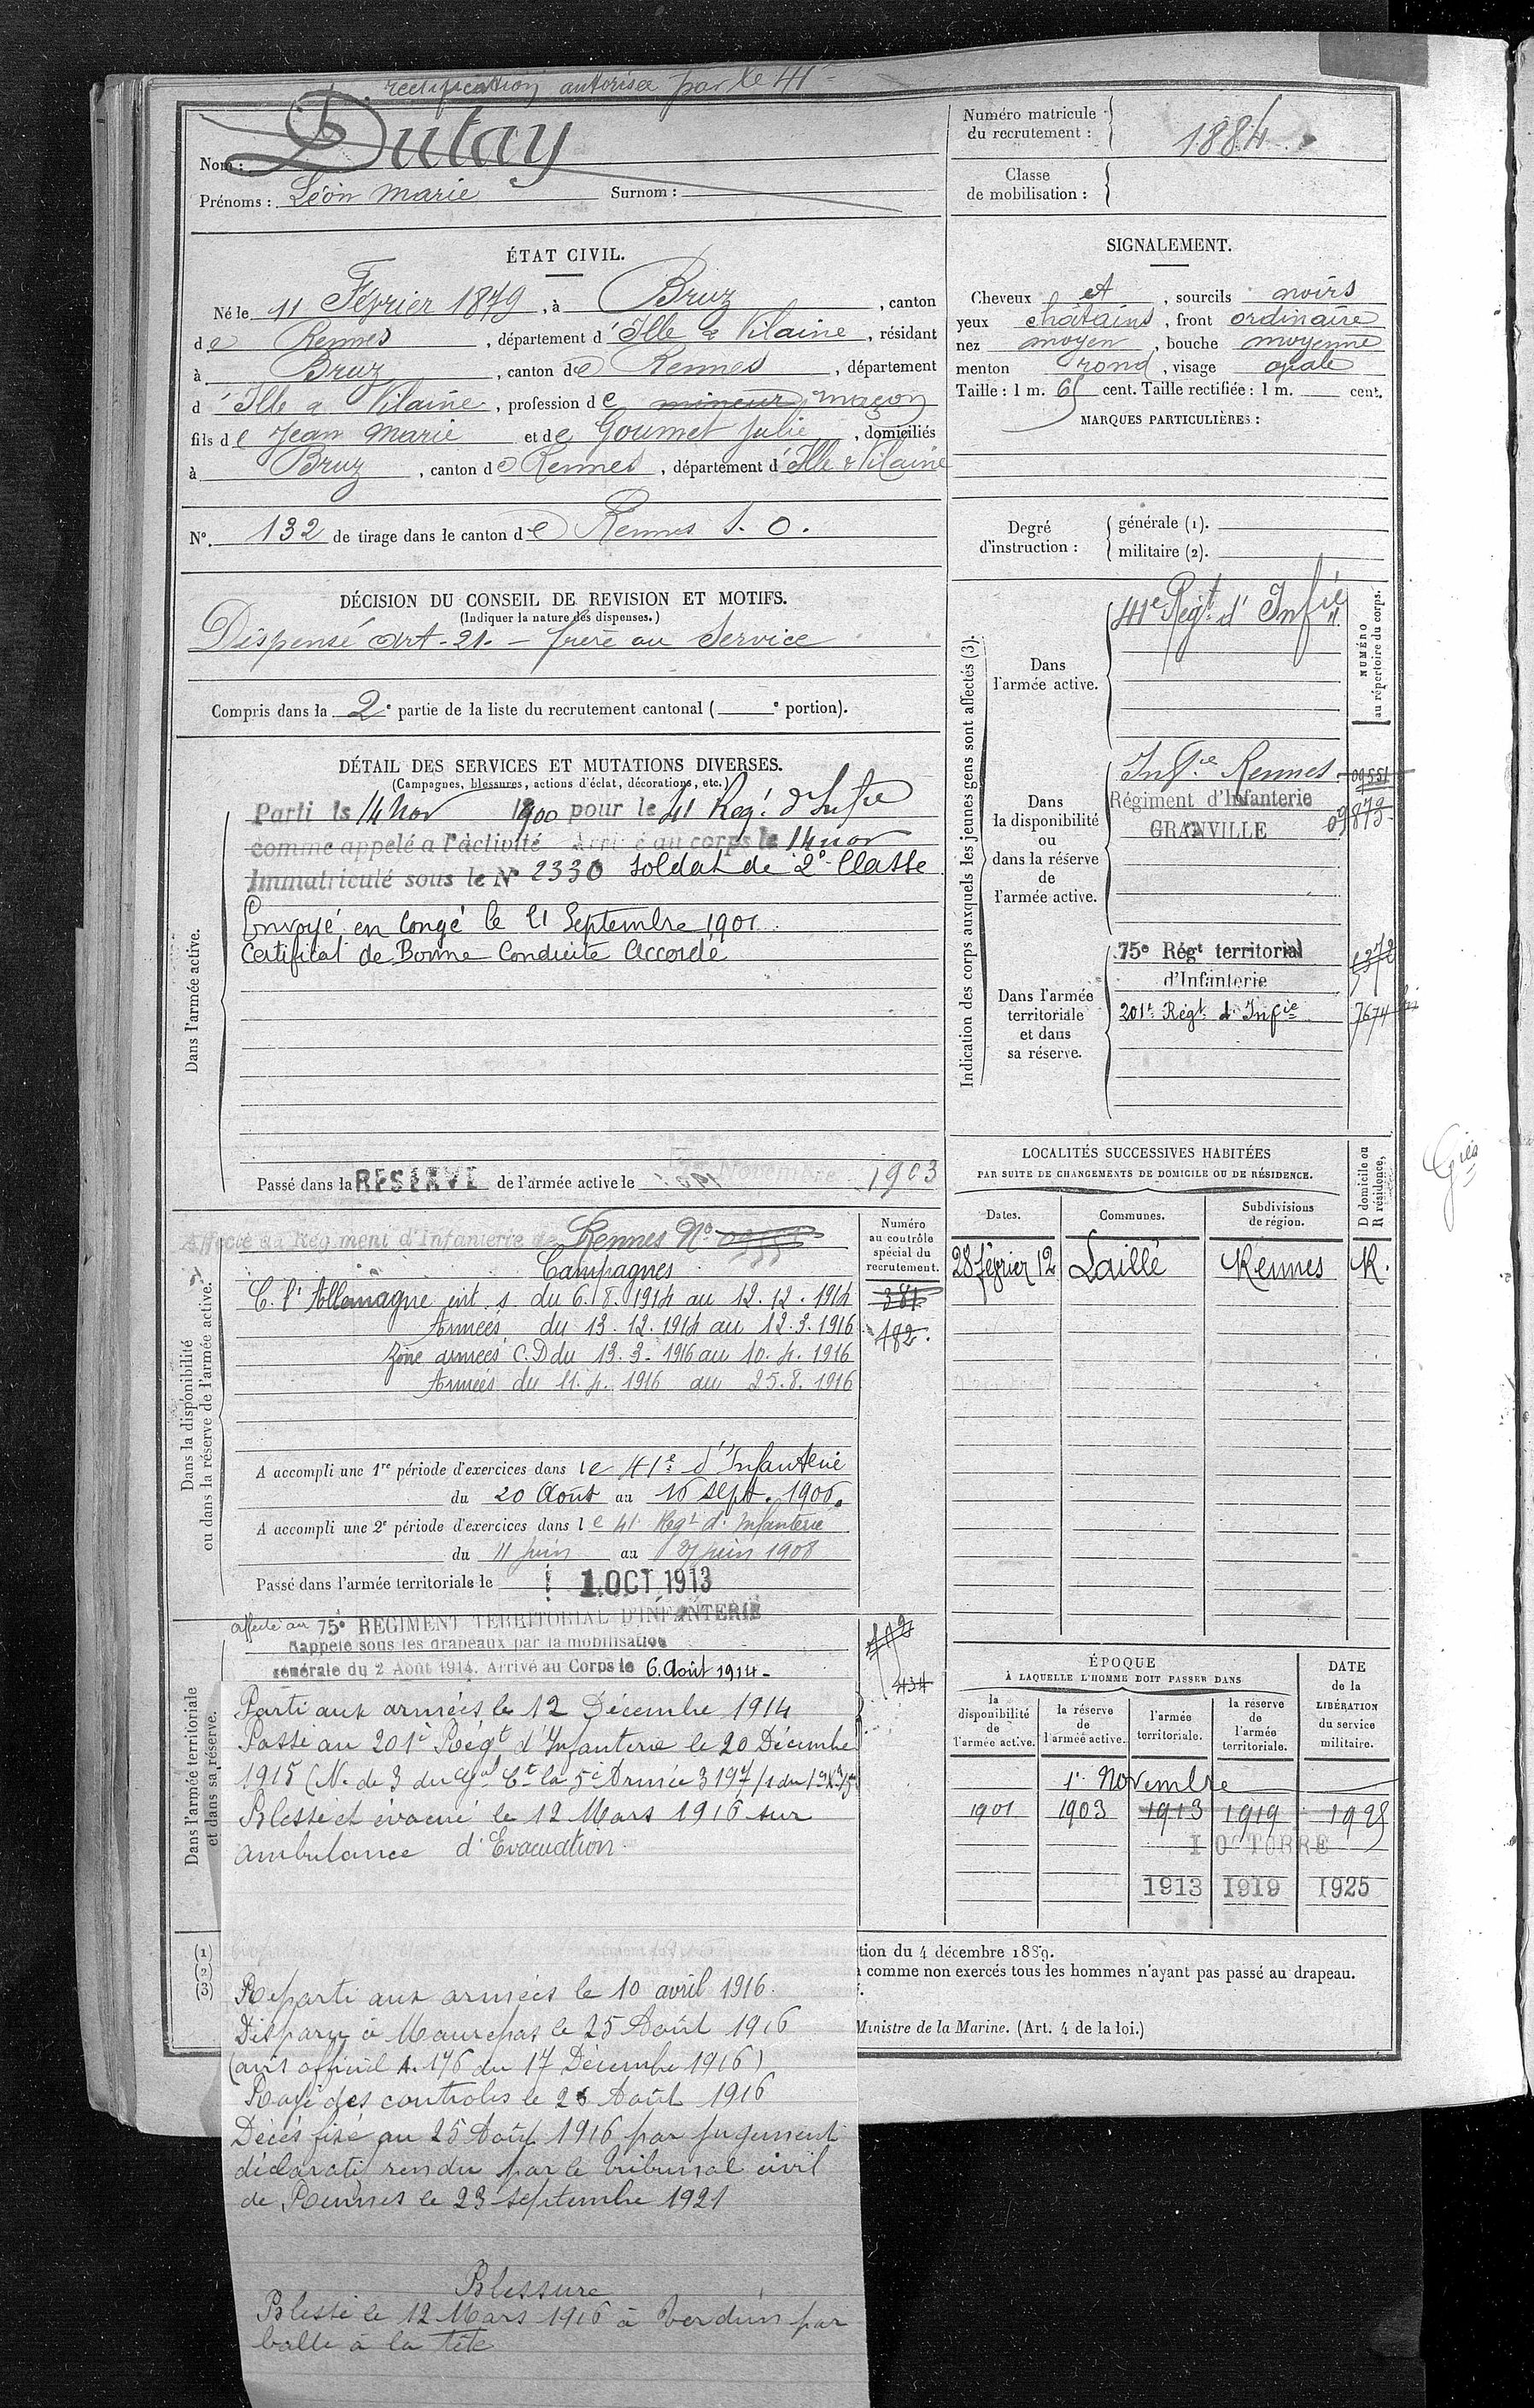 rectification autorisée par le 41e
Nom : Dutay
Prénoms : Léon Marie Surnom :
Numéro matricule du recrutement : 1884
Classe de mobilisation :
ÉTAT CIVIL.
Né le 11 Février 1879, à Bruz, canton
de Rennes, département d'Ille & Vilaine, résidant
à Bruz, canton de Rennes, département
d'Ille & Vilaine, profession de mineur maçon
fils de Jean Marie et de Goumet Julie, domiciliés
à Bruz, canton de Rennes, département d'Ille & Vilaine
N° 132 de tirage dans le canton de Rennes S. O.
SIGNALEMENT.
Cheveux et, sourcils noirs
yeux chatains, front ordinaire
nez moyen, bouche moyenne
menton rond, visage ovale
Taille : 1 m. 65 cent. Taille rectifiée : 1 m. cent.
MARQUES PARTICULIÈRES :
Degré d'instruction : générale (1).
militaire (2).
DÉCISION DU CONSEIL DE REVISION ET MOTIFS.
(Indiquer la nature des dispenses.)
Dispensé Art. 21. – frère au Service
Compris dans la 2e partie de la liste du recrutement cantonal ( e portion).
DÉTAIL DES SERVICES ET MUTATIONS DIVERSES.
(Campagnes, blessures, actions d'éclat, décorations, etc.)
Dans l'armée active.
Parti le 14 Nov 1900 pour le 41 Reg.t d'Inf.ie
comme appelé a l'activité Arrivé au corps le 14 nov
Immatriculé sous le N° 2330 Soldat de 2e Classe
Envoyé en Congé le 21 Septembre 1901
Certificat de Bonne Conduite Accordé
Passé dans la RESERVE de l'armée active le 1903
Indication des corps auxquels les jeunes gens sont affectés (3).
NUMÉRO au répertoire du corps.
Dans l'armée active.
41e Régt d'Infie
Dans la disponibilité ou dans la réserve de l'armée active.
Inf.ie Rennes 09551
Régiment d'Infanterie
GRANVILLE 09873
Dans l'armée territoriale et dans sa réserve.
75e Régt territorial
d'Infanterie
201e Régt d'Infie 7674 bis
LOCALITÉS SUCCESSIVES HABITÉES
PAR SUITE DE CHANGEMENTS DE DOMICILE OU DE RÉSIDENCE.
D domicile ou R résidence.
Dates. Communes. Subdivisions de région.
28 février 12 Laillé Rennes R.
Dans la disponibilité ou dans la réserve de l'armée active.
Numéro au contrôle spécial du recrutement.
Affecté au Régiment d'Infanterie de Rennes No
Campagnes
C. l'Allemagne int. s. du 6.8.1914 au 12.12.1914
Armées du 13.12.1914 au 12.3.1916
Zone armées C.D du 13.3.1916 au 10.4.1916
Armées du 11.4.1916 au 25.8.1916
381
482.
A accompli une 1re période d'exercices dans le 41e d'Infanterie
du 20 Août au 16 sept. 1906.
A accompli une 2e période d'exercices dans le 41 Regt d'Infanterie
du 11 juin au 27 juin 1908
Passé dans l'armée territoriale le 1 OCT 1913
Dans l'armée territoriale et dans sa réserve.
affecté au 75e RÉGIMENT TERRITORIAL D'INFANTERIE
Rappelé sous les drapeaux par la mobilisation
générale du 2 Août 1914. Arrivé au Corps le 6. Août 1914-
434
Parti aux armées le 12 Décembre 1914
Passé au 201e Régt d'Infanterie le 20 Décembre
1915 (N. de S du Gal Ct la 5e Armée
Blessé et évacué le 12 Mars 1916 sur
ambulance d'Evacuation
Reparti aux armées le 10 avril 1916.
Disparu à Maurepas le 25 Août 1916
(avis officiel A.176 du 17 Décembre 1916)
Rayé des controles le 26 Août 1916
Décès fixé au 25 Août 1916 par jugement
déclaratif rendu par le tribunal civil
de Rennes le 23 septembre 1921
Blessure
Blessé le 12 Mars 1916 à Verdun par
balle à la tête
ÉPOQUE
À LAQUELLE L'HOMME DOIT PASSER DANS
DATE de la LIBÉRATION du service militaire.
la disponibilité de l'armée active. la réserve de l'armée active. l'armée territoriale. la réserve de l'armée territoriale.
1er Novembre
1901 1903 1913 1919 1925
1 OCTOBRE
1913 1919 1925
(1)
(2)
(3)
tion du 4 décembre 1889.
comme non exercés tous les hommes n'ayant pas passé au drapeau.
Ministre de la Marine. (Art. 4 de la loi.)